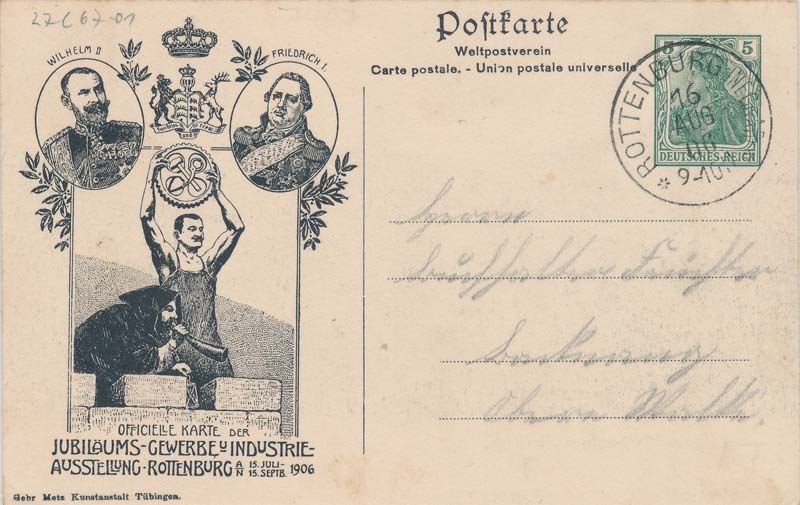 27/67-01
WILHELM II
FRIEDRICH I.
Postkarte
Weltpostverein
Carte postale. - Union postale universelle
5 5
DEUTSCHES REICH
ROTTENBURG
16
AUG
06
9-10
Herrn
Buchhalter Feuchter
Backnang
Obere Walk.
OFFICIELLE KARTE DER
JUBILÄUMS-GEWERBE U INDUSTRIE-
AUSSTELLUNG · ROTTENBURG A/N 15. JULI-15. SEPTB. 1906
Gebr Metz Kunstanstalt Tübingen.